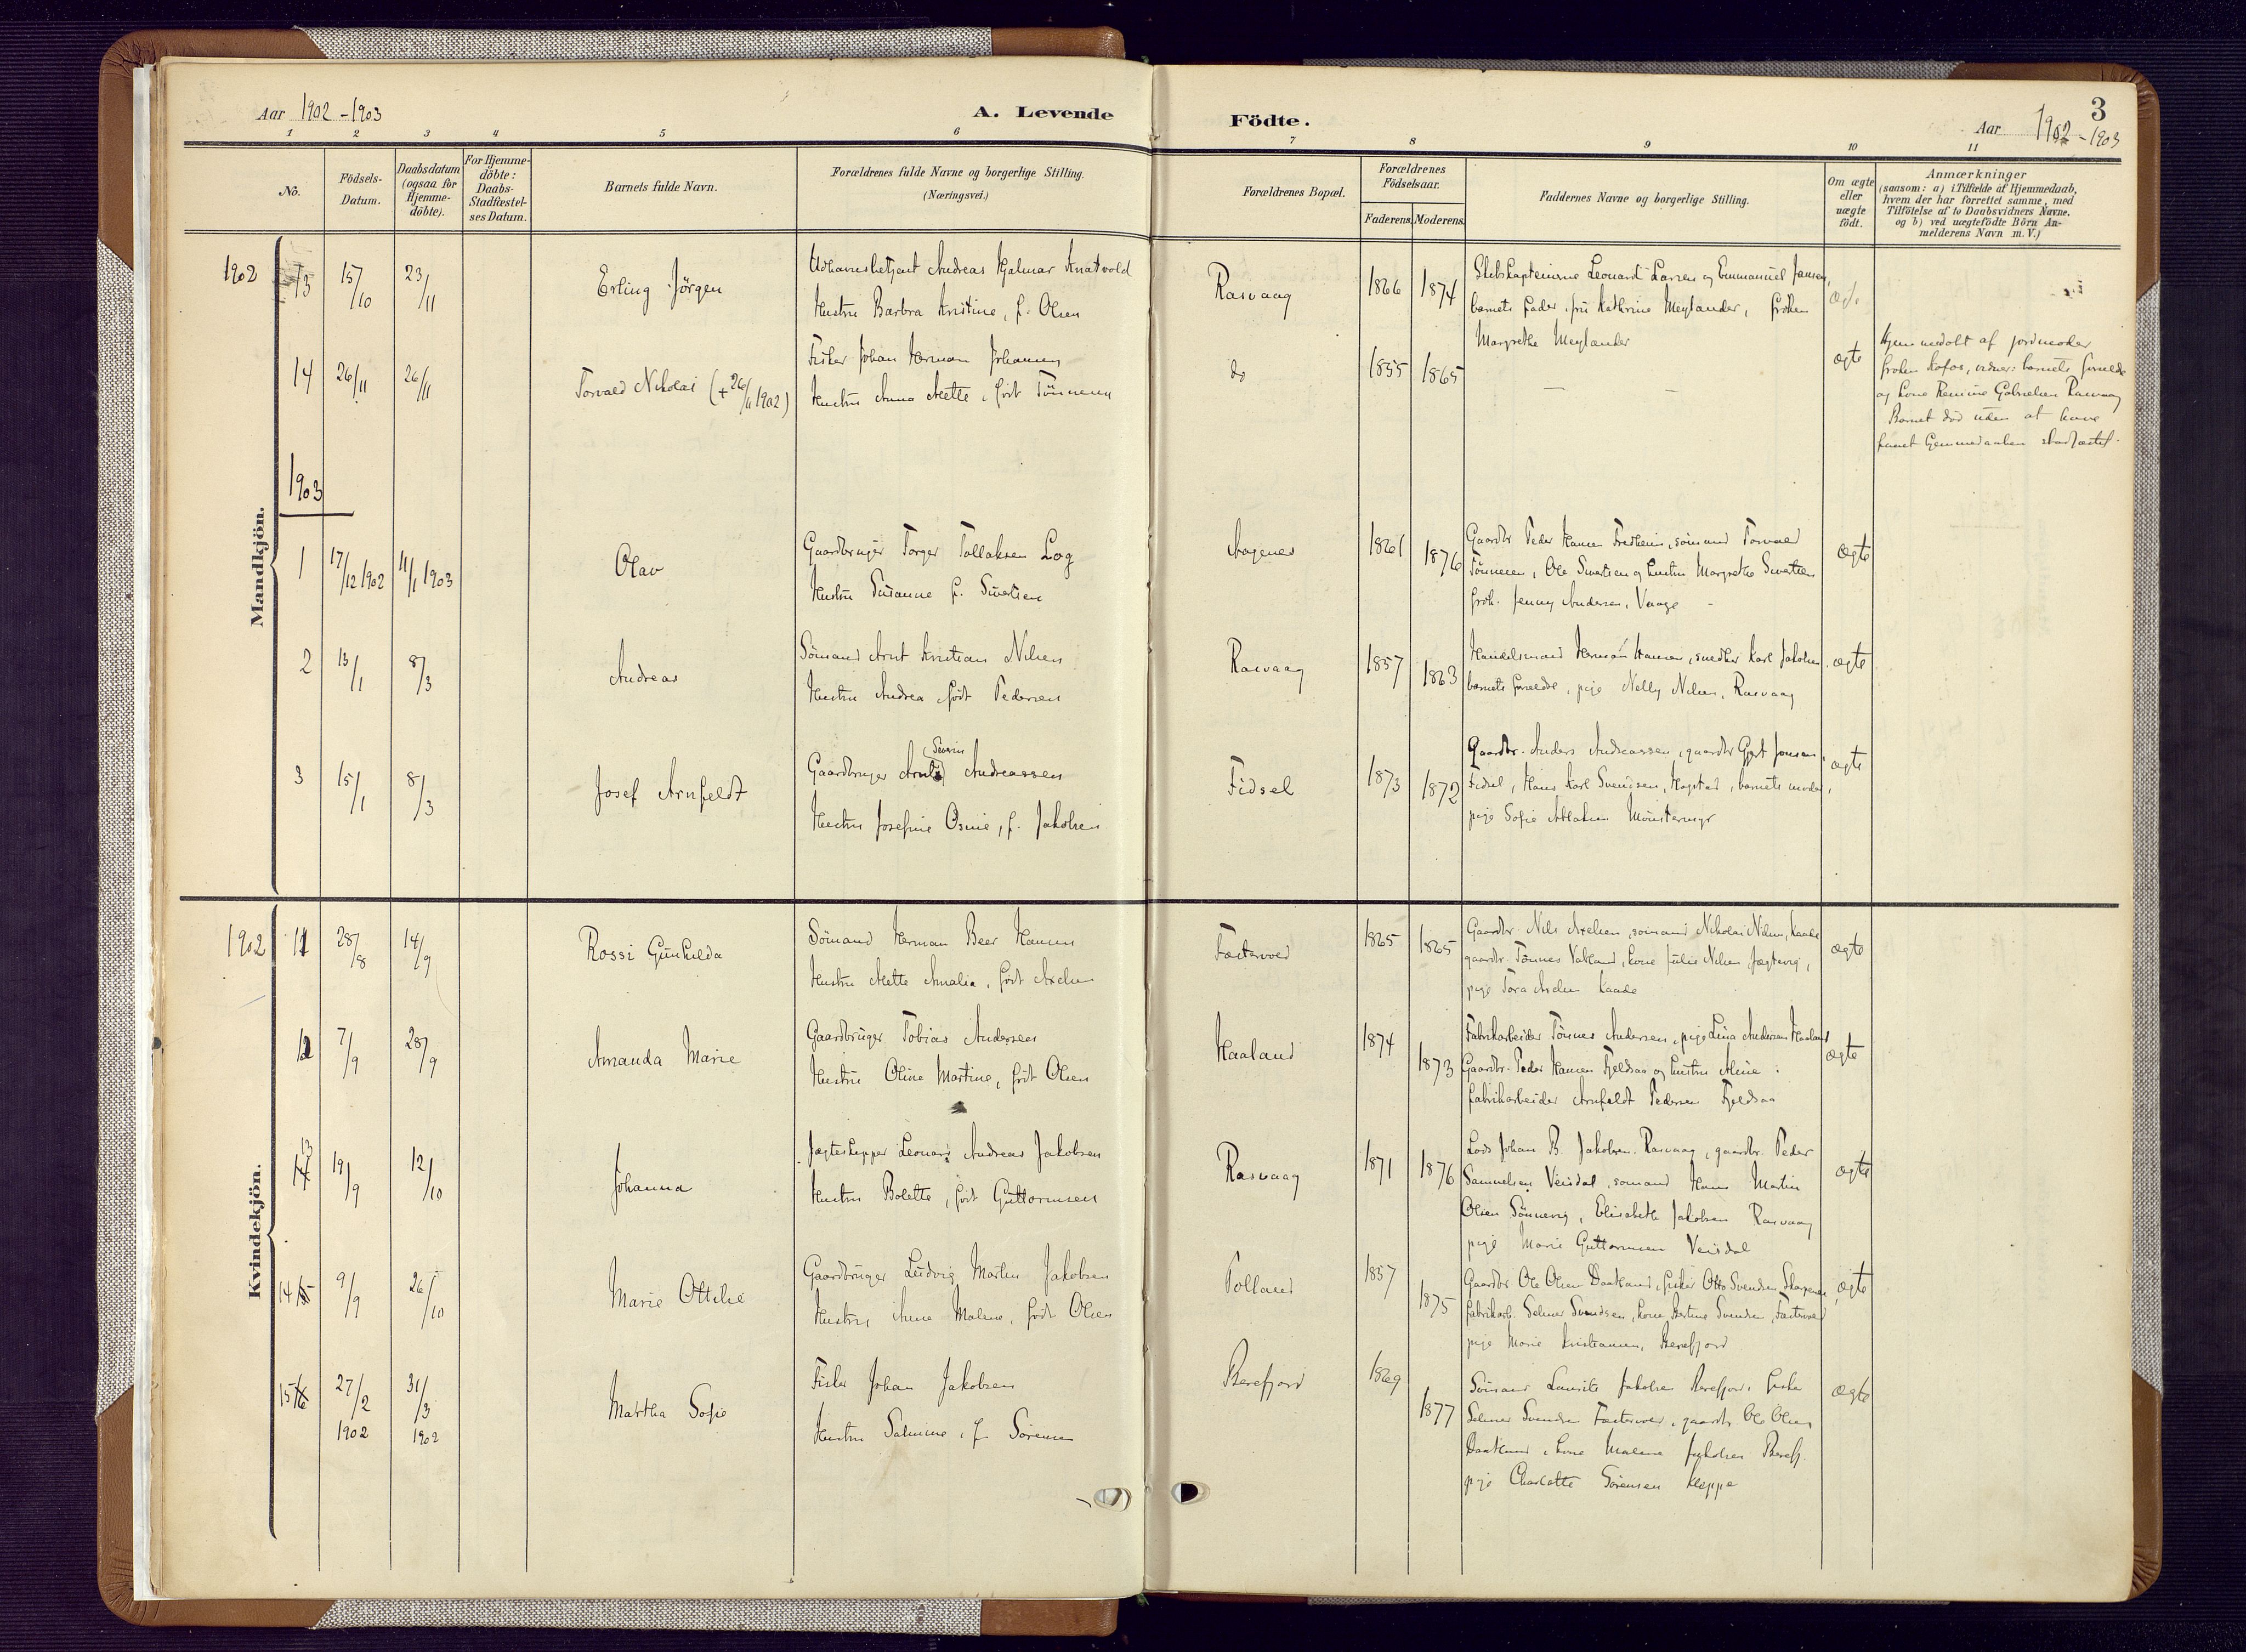 Aar 1902 - 1903
A. Levende
Födte.
Aar 1902 - 1903
3
1 2 3 4 5 6 7 8 9 10 11
No.
Födsels-
Datum.
Daabsdatum
(ogsaa for
Hjemme-
döbte).
For Hjemme-
döbte:
Daabs-
Stadfæstel-
ses Datum.
Barnets fulde Navn.
Forældrenes fulde Navne og borgerlige Stilling.
(Næringsvei.)
Forældrenes Bopæl.
Forældrenes
Födselsaar.
Faderens. Moderens.
Faddernes Navne og borgerlige Stilling.
Om ægte
eller
uægte
födt.
Anmærkninger
(saasom: a) i Tilfælde af Hjemmedaab,
hvem der har forrettet samme, med
Tilföielse af to Daabsvidners Navne,
og b) ved uægtefödte Börn An-
melderens Navn m. V.)
Mandkjön.
1902
13 15/10 23/11 Erling Jörgen
Andreas Hjalmar Knatvold
Hustru Barbra Kristine, f. Olsen
Rasvaag 1866 1874
Skibskapteinerne Leonard Larsen og Emmanuel Jansen,
barnets fader, fru Kathrine Meylander, fröken
Margrethe Meylander
14 26/11 26/11 Torvald Nikolai (+ 26/11 1902)
Fisker Johan Herman Johansen
Hustru Anna Mette, født Tönnesen
do 1855 1865 — — ægte
Hjemmedöbt af jordmoder
fröken Kofoe, vidner: barnets forældre
og kone Gabrielsen Rasvaag
Barnet död uden at have
faaet hjemmedaaben stadfæstet.
1903
1 17/12 1902 11/1 1903 Olav
Gaardbruger Torger Tollaksen Log
Hustru Susanne f. Sivertsen
Aagenes 1861 1876
Gaardbr Peder Hansen, sömand Torvald
Tönnesen, Ole Sivertsen og hustru Margrethe Sivertsen
frök. Jenny Andersen, Vaage -
ægte
2 13/1 8/3 Andreas
Sömand Arnt Kristian Nilsen
Hustru Andrea, født Pedersen
Rasvaag 1857 1863
Handelsmand Herman Hansen, snedker Karl Jakobsen
barnets forældre, pige Nelly Nilsen, Rasvaag
ægte
3 15/1 8/3 Josef Arnfeldt
Severin
Gaardbruger Arnt Andreassen
Hustru Josefine Osmie, f. Jakobsen
Fidsel 1873 1872
Gaardbr. Anders Andreassen, gaardbr Gjert Jonsen,
Fidsel, Hans Karl Svendsen, Hogstad, barnets moder,
pige Sofie Mönstermyr
ægte
Kvindekjön.
1902
11 28/8 14/9 Rossi Gunhilda
Sömand Herman Beer Hansen
Hustru Mette Amalia, født Axelsen
Farterved 1865 1865
Gaardbr. Nils Axelsen, sömand Nikolai Nilsen, Kaade
gaardbr. Tönnes Vatland, kone Julie Nilsen,
pige Tora Axelsen Kaade
ægte
12 7/9 28/9 Amanda Marie
Gaardbruger Tobias Andersen
Hustru Oline Martine, født Olsen
Haaland 1874 1873
Fabrikarbeider Tönnes Andersen, pige Lina Andersen Haaland
Gaardbr. Peder Hansen Fjeldsaa og hustru Aline
fabrikarbeider Arnfeldt Pedersen Fjeldsaa
ægte
13
14 19/9 12/10 Johanna
Jægteskipper Leonard Andreas Jakobsen
Hustru Bolette, født Guttormsen
Rasvaag 1871 1876
Lods Johan B. Jakobsen Rasvaag, gaardbr. Peder
Samuelsen Veisdal, sömand Hans Martin
Olsen Sönnevig, Elisabeth Jakobsen Rasvaag
pige Marie Guttormsen Veisdal
ægte
14 15 9/9 26/10 Marie Ottilie
Gaardbruger Ludvig Martin Jakobsen
Hustru Anne Malene, født Olsen
Tolland 1857 1875
Gaardbr Ole Olsen Daatland, fisker Otto Svendsen
fabrikarb. Selmer Svendsen, kone Svendsen, Farterved
pige Marie Kristiansen, Berefjord
ægte
15 16 27/2 1902 31/3 1902 Martha Sofie
Fisker Johan Jakobsen
Hustru Salmine, f. Sörensen
Berefjord 1869 1877
Sömand Laurits Jakobsen Berefjord, fisker
Selmer Svendsen Farterved, gaardbr. Ole Olsen
Daatland, kone Malene Jakobsen Berefj.
pige Charlotte Sörensen Kleppe
ægte